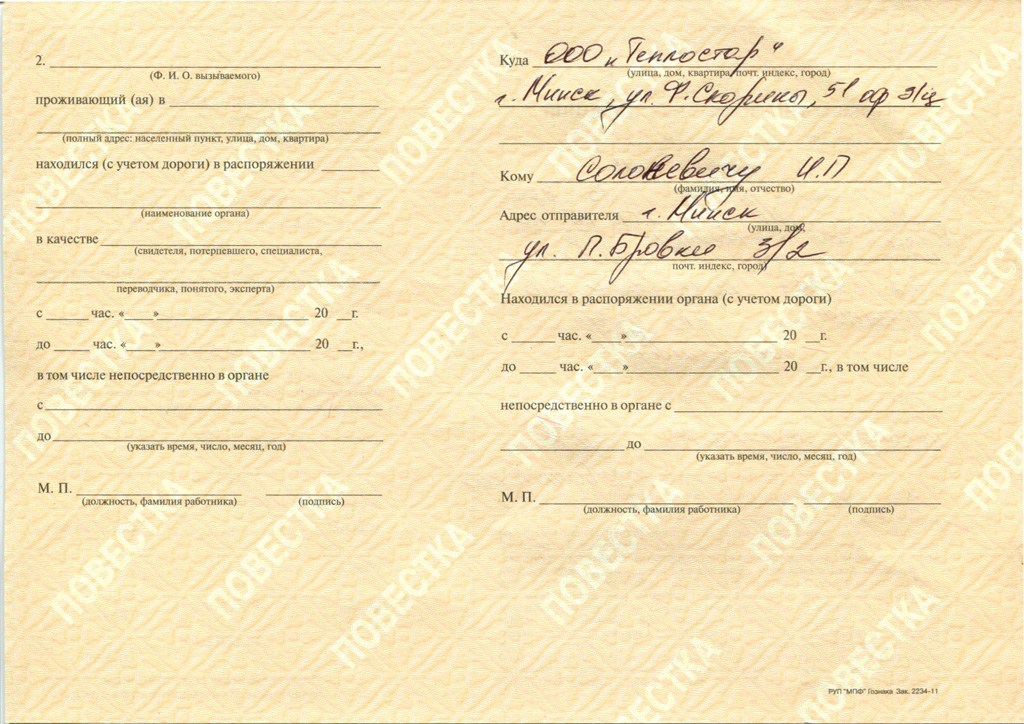 2. ____________
(Ф. И. О. вызываемого)
проживающий (ая) в ____________
(полный адрес: населенный пункт, улица, дом, квартира)
находился (с учетом дороги) в распоряжении ________
(наименование органа)
в качестве ____________
(свидетеля, потерпевшего, специалиста,
переводчика, понятого, эксперта)
с ______ час. «____»____________ 20 __г.
до _____ час. «____»____________ 20 __г.,
в том числе непосредственно в органе
с____________
до____________
(указать время, число, месяц, год)
М. П. ____________
(должность, фамилия работника) (подпись)
Куда ООО "Теплостар"
(улица, дом, квартира, почт. индекс, город)
г. Минск, ул. Ф. Скорины, 51 оф
Кому Солоневичу И.П
(фамилия, имя, отчество)
Адрес отправителя г. Минск
(улица, дом,
ул. П. Бровки 3/2
почт. индекс, город)
Находился в распоряжении органа (с учетом дороги)
с ______ час. «____»____________ 20 __г.
до _____ час. «____»____________ 20 __г., в том числе
непосредственно в органе с ____________
____________ до ____________
(указать время, число, месяц, год)
М. П. ____________
(должность, фамилия работника) (подпись)
РУП "МПФ" Гознака Зак. 2234-11
ПОВЕСТКА